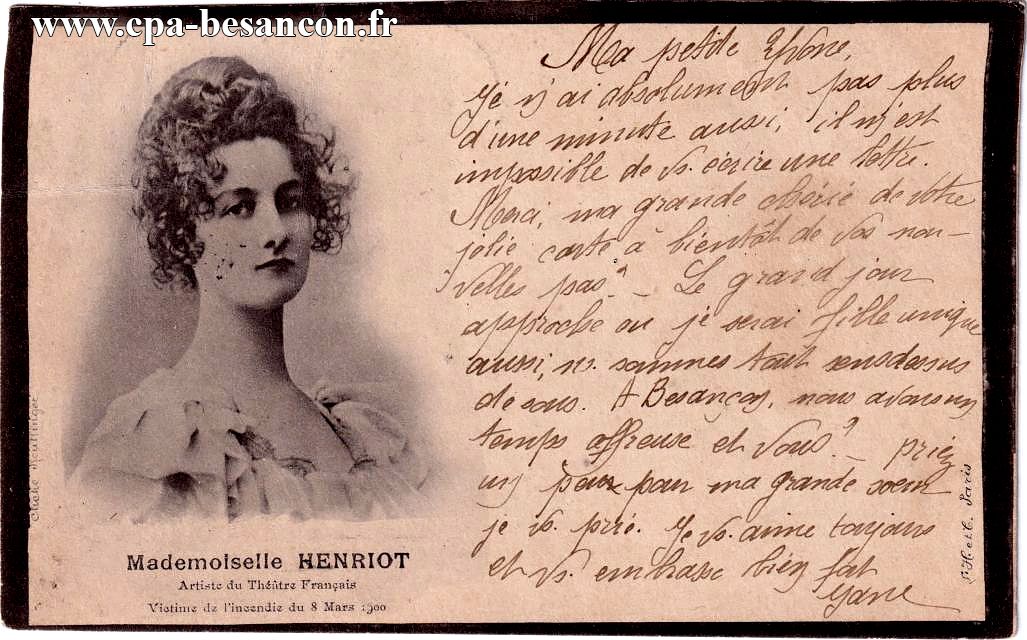 www.cpa-besancon.fr
Ma petite Yvone,
Je n'ai absolument pas plus
d'une minute aussi, il m'est
impossible de vs. écrire une lettre.
Merci, ma grande chérie de votre
jolie carte à bientôt de vos nou-
velles pas? - Le grand jour
approche ou je serai fille unique
aussi, ns. sommes tout sensdessus
de sous. A Besançon, nous avons un
temps affreuse et vous? - priez
un peu pour ma grande soeur
je vs. prie. Je vs. aime toujours
et vs. embrasse bien fort
Yane
Cliché Reutlinger
Mademoiselle HENRIOT
Artiste du Théâtre Français
Victime de l'incendie du 8 Mars 1900
H. et C. Paris